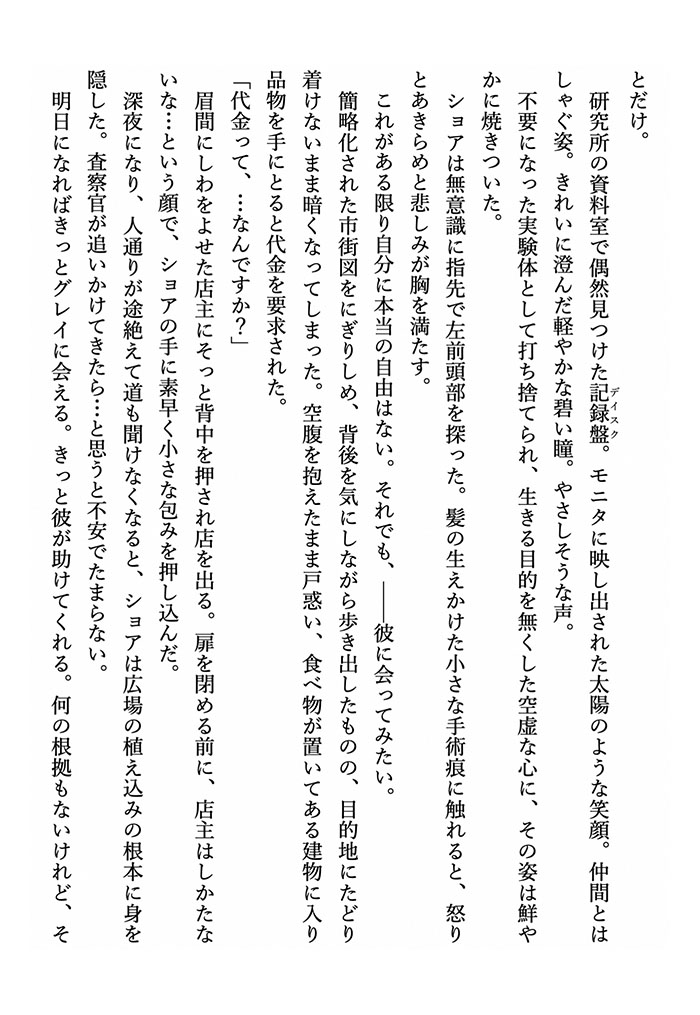 とだけ。
　研究所の資料室で偶然見つけた記録盤。モニタに映し出された太陽のような笑顔。仲間とは
ディスク
しゃぐ姿。きれいに澄んだ軽やかな碧い瞳。やさしそうな声。
　不要になった実験体として打ち捨てられ、生きる目的を無くした空虚な心に、その姿は鮮や
かに焼きついた。
　ショアは無意識に指先で左前頭部を探った。髪の生えかけた小さな手術痕に触れると、怒り
とあきらめと悲しみが胸を満たす。
　これがある限り自分に本当の自由はない。それでも、――彼に会ってみたい。
　簡略化された市街図をにぎりしめ、背後を気にしながら歩き出したものの、目的地にたどり
着けないまま暗くなってしまった。空腹を抱えたまま戸惑い、食べ物が置いてある建物に入り
品物を手にとると代金を要求された。
「代金って、…なんですか？」
　眉間にしわをよせた店主にそっと背中を押され店を出る。扉を閉める前に、店主はしかたな
いな…という顔で、ショアの手に素早く小さな包みを押し込んだ。
　深夜になり、人通りが途絶えて道も聞けなくなると、ショアは広場の植え込みの根本に身を
隠した。査察官が追いかけてきたら…と思うと不安でたまらない。
　明日になればきっとグレイに会える。きっと彼が助けてくれる。何の根拠もないけれど、そ